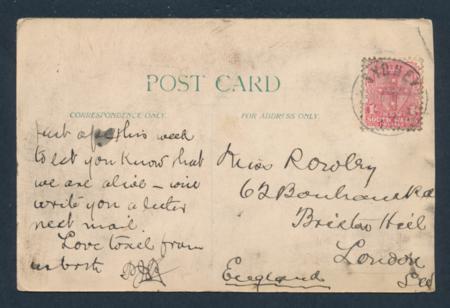 POST CARD
CORRESPONDENCE ONLY.
FOR ADDRESS ONLY.
SYDNEY
SOUTH WALES
Just a p.c. this week
to let you know that
we are alive – will
write you a letter
next mail.
Love to all from
us both
Miss Rowley
62 Bonham Rd
Brixton Hill
London
England